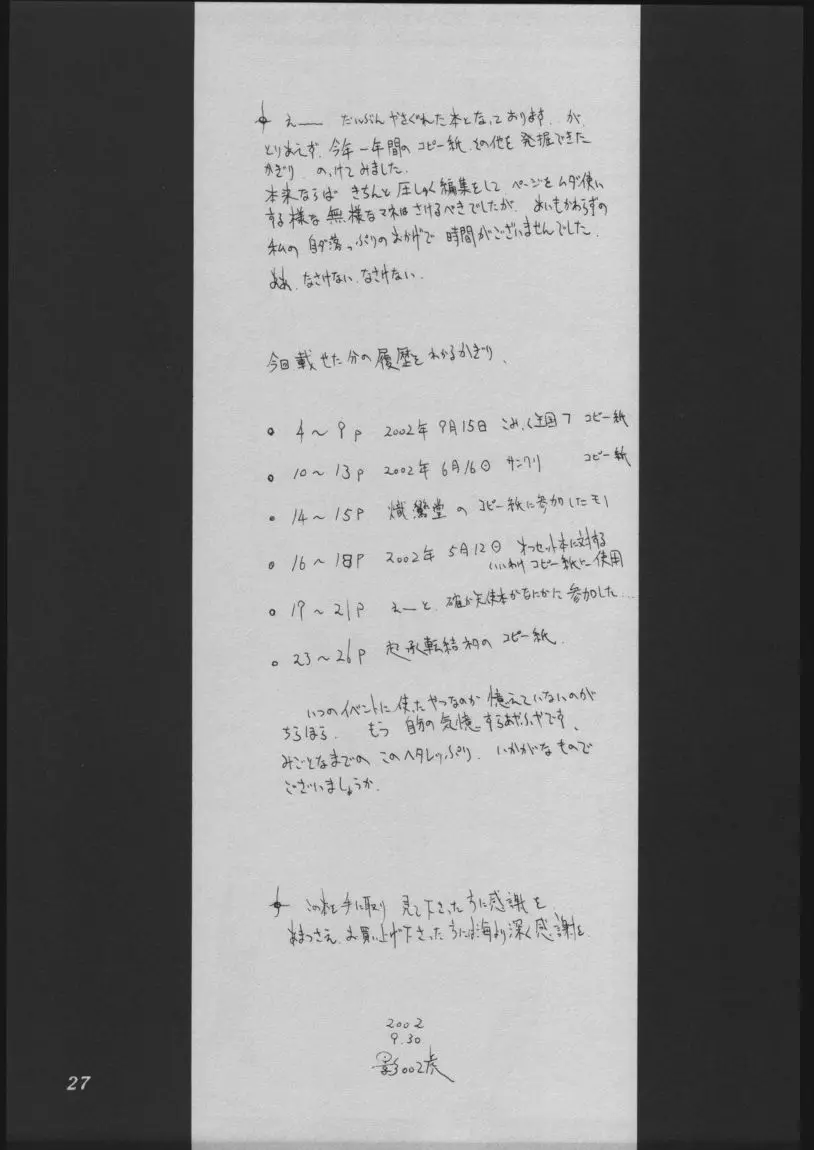 えー だいぶん やさぐれた本となっております. が,
とりあえず. 今年一年間の コピー紙. その他を 発掘できた
かぎり. のっけてみました.
本来ならば きちんと 圧しゅく編集をして ページをムダ使い
する様な 無様なマネはさけるべきでしたが. あいもかわらずの
私の 自ダ落っぷりのおかげで 時間がございませんでした.
ああ. なさけない. なさけない.
今回載せた分の履歴を わかるかぎり.
○ 4〜9p 2002年 9月15日 コピー紙
○ 10〜13p 2002年 6月16日 サンクリ コピー紙
○ 14〜15p 堂の コピー紙に参加したモノ
○ 16〜18p 2002年 5月12日 オフセット本に対する
いいわけ コピー紙に 使用
○ 19〜21p えーと. 確か天使本かなにかに 参加した...
○ 23〜26p 起承転結 コピー紙.
いつのイベントに使ったやつなのか 憶えていないのが
ちらほら. もう 自分の気憶 するあやふやです.
みごとなまでの このヘタレっぷり. いかがなもので
ございましょうか.
この本を手に取り 見て下さった方に感謝を.
あまつさえ. お買い上げ下さった方には海より深く感謝を.
2002
9.30
影002虎
27